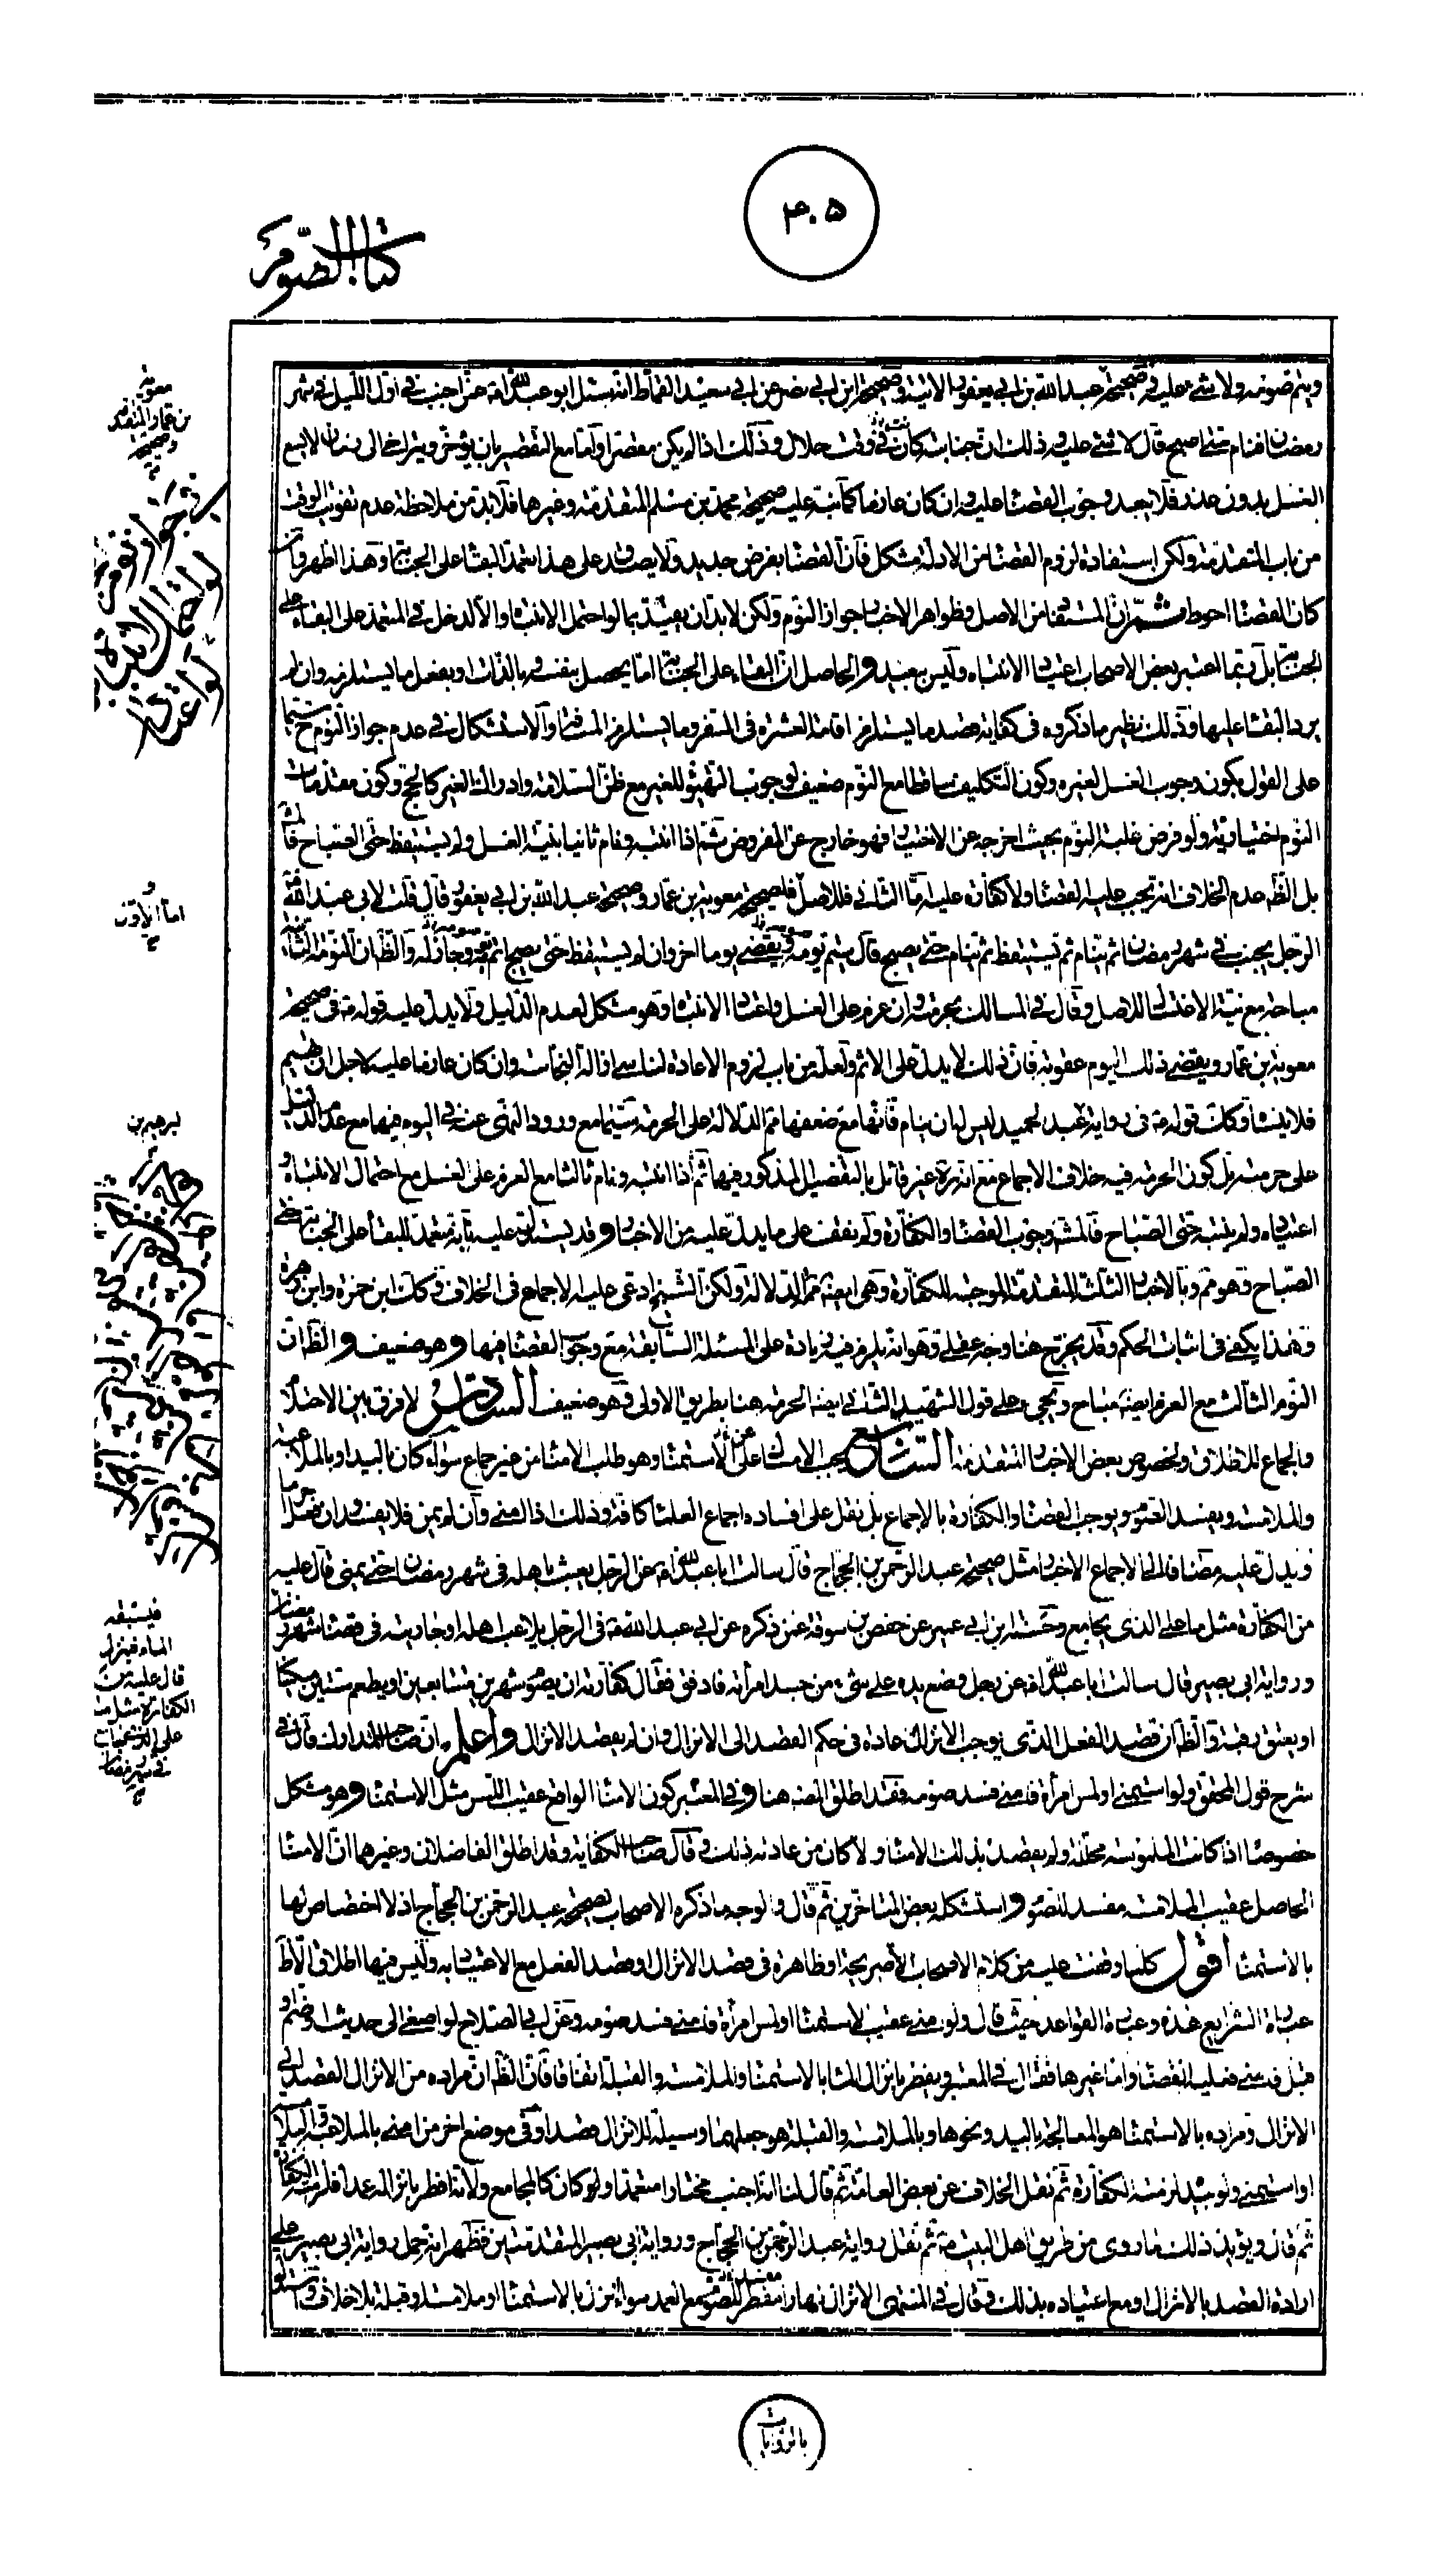 ۴۰۵
كتاب الصوم
ويتم صومه ولا شيء عليه وصحيحة عبد الله بن ابي يعفور الاتية وصحيحة ابن ابي نصر عن ابي سعيد القماط انه سئل ابو عبد الله ع عمن اجنب في اول الليل في شهر
رمضان فنام حتى اصبح قال لا شيء عليه وذلك ان جنابته كانت في وقت حلال وذلك اذا لم يكن مقصرا واما مع التقصير بان يؤخر ويتراخى الى زمان لا يسع
الغسل بدون عذر فلا يبعد وجوب القضاء عليه وان كان عازما كما نبه عليه صحيحة محمد بن مسلم المتقدمة وغيرها فلا بد من ملاحظة عدم تفويت الوقت
من باب المقدمة ولكن استفادة لزوم القضاء من الادلة مشكل فان القضاء بفرض جديد ولا يصدق على هذا تعمد البقاء على الجنابة وهذا اظهر وان
كان القضاء احوط ثم ان المستفاد من الاصل وظواهر الاخبار جواز النوم ولكن لا بد ان يقيد بما لو احتمل الانتباه والا لدخل في المتعمد على البقاء على
الجنابة بل ربما اعتبر بعض الاصحاب اعتياد الانتباه وليس ببعيد والحاصل ان البقاء على الجنابة اما يحصل بنفسها بالذات او بفعل ما يستلزمه وان لم
يرد البقاء عليها وذلك نظير ما ذكروه في كفاية قصد ما يستلزم اقامة العشرة في السفر وما يستلزم المسافة والاستشكال في عدم جواز النوم ح سيما
على القول بكون وجوب الغسل لغيره وكون التكليف ساقطا مع النوم ضعيف لوجوب التهيؤ للغير مع ظن السلامة وادراك الغير كالحج وكون مقدمات
النوم اختيارية ولو فرض غلبة النوم بحيث اخرجه عن الاختيار فهو خارج عن المفروض ثم اذا انتبه ونام ثانيا بنية الغسل ولم يستيقظ حتى الصباح فالمش
بل الظ عدم الخلاف انه يجب عليه القضاء ولا كفارة عليه اما الثاني فللاصل فلصحيحة معوية بن عمار وصحيحة عبد الله بن ابي يعفور قال قلت لابي عبد الله ع
الرجل يجنب في شهر رمضان ثم ينام ثم يستيقظ ثم ينام حتى يصبح قال يتم يومه ويقضي يوما اخر وان لم يستيقظ حتى يصبح اتم يومه وجاز له والظ ان النومة الثانية
مباحة مع نية الاغتسال للاصل وقال في المسالك بحرمته وان عزم على الغسل واعتاد الانتباه وهو مشكل لعدم الدليل ولا يدل عليه قوله ع في صحيحة
معوية بن عمار ويقضي ذلك اليوم عقوبة فان ذلك لا يدل على الاثم ولعله من باب لزوم الاعادة لناسي ازالة النجاسة وان كان عازما عليه لاجل ان يهتم
فلا ينساه وكك قوله ع في رواية عبد الحميد ليس له ان ينام فانها مع ضعفها مم الدلالة على الحرمة سيما مع ورود النهي عنه في اليوم فيها مع عدم القائل
على حرمته بل كون الحرمة فيه خلاف الاجماع مع انه ره غير قائل بالتفصيل المذكور فيها ثم اذا انتبه ونام ثالثا مع العزم على الغسل مع احتمال الانتباه و
اعتياده ولم ينتبه حتى الصباح فالمش وجوب القضاء والكفارة ولم نقف على ما يدل عليه من الاخبار وقد يستدل عليه بانه متعمد للبقاء على الجنابة حتى
الصباح وهو مم وبالاخبار الثلث المتقدمة الموجبة للكفارة وهي ايضا مم الدلالة ولكن الشيخ ادعى عليه الاجماع في الخلاف وكك ابن حمزة وابن زهرة
وهذا يكفي في اثبات الحكم وقد يخرج هنا وجه عقلي وهو انه يلزم فيه زيادة على المسئلة السابقة مع وجوب القضاء فيها وهو ضعيف والظ ان
النوم الثالث مع العزم ايضا مباح ويجيء على قول الشهيد الثاني ايضا الحرمة هنا بطريق الاولى وهو ضعيف السادس لا فرق بين الاحتلام
والجماع للاطلاق ولخصوص بعض الاخبار المتقدمة السابع يجب الامساك عن الاستمناء وهو طلب الامناء من غير جماع سواء كان باليد او بالملاعبة
والملامسة ويفسد الصوم ويوجب القضاء والكفارة بالاجماع بل نقل على افساده اجماع العلماء كافة وذلك اذا امنى وان لم يمن فلا يفسد وان فعل حراما
ويدل عليه مضافا الى الاجماع الاخبار مثل صحيحة عبد الرحمن بن الحجاج قال سالت ابا عبد الله ع عن الرجل يعبث باهله في شهر رمضان حتى يمني قال عليه
من الكفارة مثل ما على الذي يجامع وحسنة ابن ابي عمير عن حفص بن سوقة عمن ذكره عن ابي عبد الله ع في الرجل يلاعب اهله او جاريته في قضاء شهر رمضان
ورواية ابي بصير قال سالت ابا عبد الله ع عن رجل وضع يده على شيء من جسد امرأته فادفق فقال كفارته ان يصوم شهرين متتابعين او يطعم ستين مسكينا
او يعتق رقبة والظ ان قصد الفعل الذي يوجب الانزال عادة في حكم القصد الى الانزال وان لم يقصد الانزال واعلم ان صاحب المدارك قال في
شرح قول المحقق ولو استمنى او لمس امرأة فامنى فسد صومه فقد اطلق المص هنا وفي المعتبر كون الامناء الواقع عقيب اللمس مثل الاستمناء وهو مشكل
خصوصا اذا كانت الملموسة محللة ولم يقصد بذلك الامناء ولا كان من عادته ذلك وقال صاحب الكفاية وقد اطلق الفاضلان وغيرهما ان الامناء
الحاصل عقيب الملامسة مفسد للصوم واستشكله بعض المتاخرين ثم قال والوجه ما ذكره الاصحاب لصحيحة عبد الرحمن بن الحجاج اذ لا اختصاص لها
بالاستمناء اقول كلما وقفت عليه من كلام الاصحاب صريحة او ظاهرة في قصد الانزال او قصد الفعل مع الاعتياد به وليس فيها اطلاق الا ظ
عبارة الشرايع هذه وعبارة القواعد حيث قال ولو امنى عقيب الاستمناء او لمس امرأة فامنى فسد صومه
قبل فامنى فعليه القضاء واما غيرها فقال في المعتبر ويفطر بانزال الماء بالاستمناء والملامسة والقبلة اتفاقا فان الظ ان مراده من الانزال القصد الى
الانزال ومراده بالاستمناء هو المعالجة باليد ونحوها وبالملامسة والقبلة هو جعلهما وسيلة للانزال قصدا وفي موضع اخر من امنى بالملاعبة والملامسة
او استمنى ولو بيده لزمته الكفارة ثم نقل الخلاف عن بعض العامة ثم قال لنا انه اجنب مختارا متعمدا ولو كان كالمجامع ولانه افطر بانزاله عمدا فلزمته الكفارة
ثم قال ويؤيد ذلك ما روي من طريق اهل البيت ع ثم نقل رواية عبد الرحمن بن الحجاج ورواية ابي بصير المتقدمتين فظهر انه حمل رواية ابي بصير على
ارادة القصد بالانزال او مع اعتياده بذلك وقال في المنتهى الانزال نهارا مفطر للصوم مع العمد سواء انزل بالاستمناء او ملامسة او قبلة بلا خلاف
معوية
بن عمار المتقدمة
وصحيحة
اما الاول
فيسبقه
الماء فينزل
قال عليه من
الكفارة مثل ما
على الذي جامع
في شهر رمضان
بالروايات